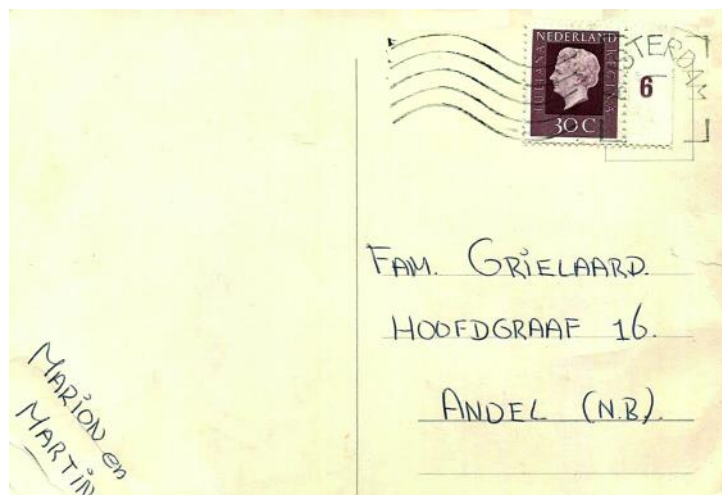 NEDERLAND
JULIANA
REGINA
30 C
6
FAM. GRIELAARD.
HOOFDGRAAF 16.
ANDEL (N.B).
MARION en
MARTIN